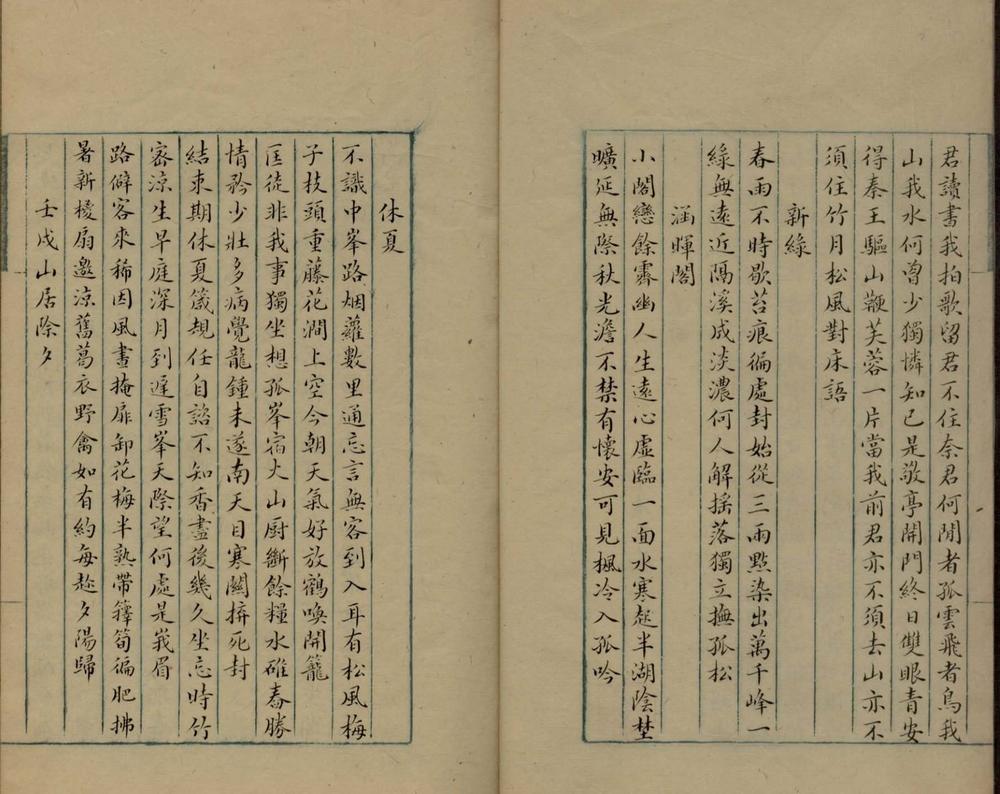 君讀書我拍歌留君不住奈君何閒者孤雲飛者鳥我
山我水何曾少獨憐知己是敬亭開門終日雙眼青安
得秦王驅山鞭芙蓉一片當我前君亦不須去山亦不
須住竹月松風對床語
新綠
春雨不時歇苔痕徧處封始從三兩點染出萬千峰一
綠無遠近隔溪成淡濃何人解搖落獨立撫孤松
涵暉閣
小閣戀餘霽幽人生遠心虛臨一面水寒起半湖陰埜
曠延無際秋光澹不禁有懷安可見楓冷入孤吟
休夏
不識中峯路烟蘿數里通忘言無客到入耳有松風梅
子枝頭重藤花澗上空今朝天氣好放鶴喚開籠
匡徒非我事獨坐想孤峯宿火山厨斷餘糧水碓舂勝
情矜少壯多病覺龍鍾未遂南天目寒關拚死封
結束期休夏箴規任自諮不知香盡後幾久坐忘時竹
密涼生早庭深月到遲雪峯天際望何處是峩眉
路僻客來稀因風晝掩扉卸花梅半熟帶籜筍徧肥拂
暑新椶扇邀涼舊葛衣野禽如有約每趁夕陽歸
壬戌山居除夕